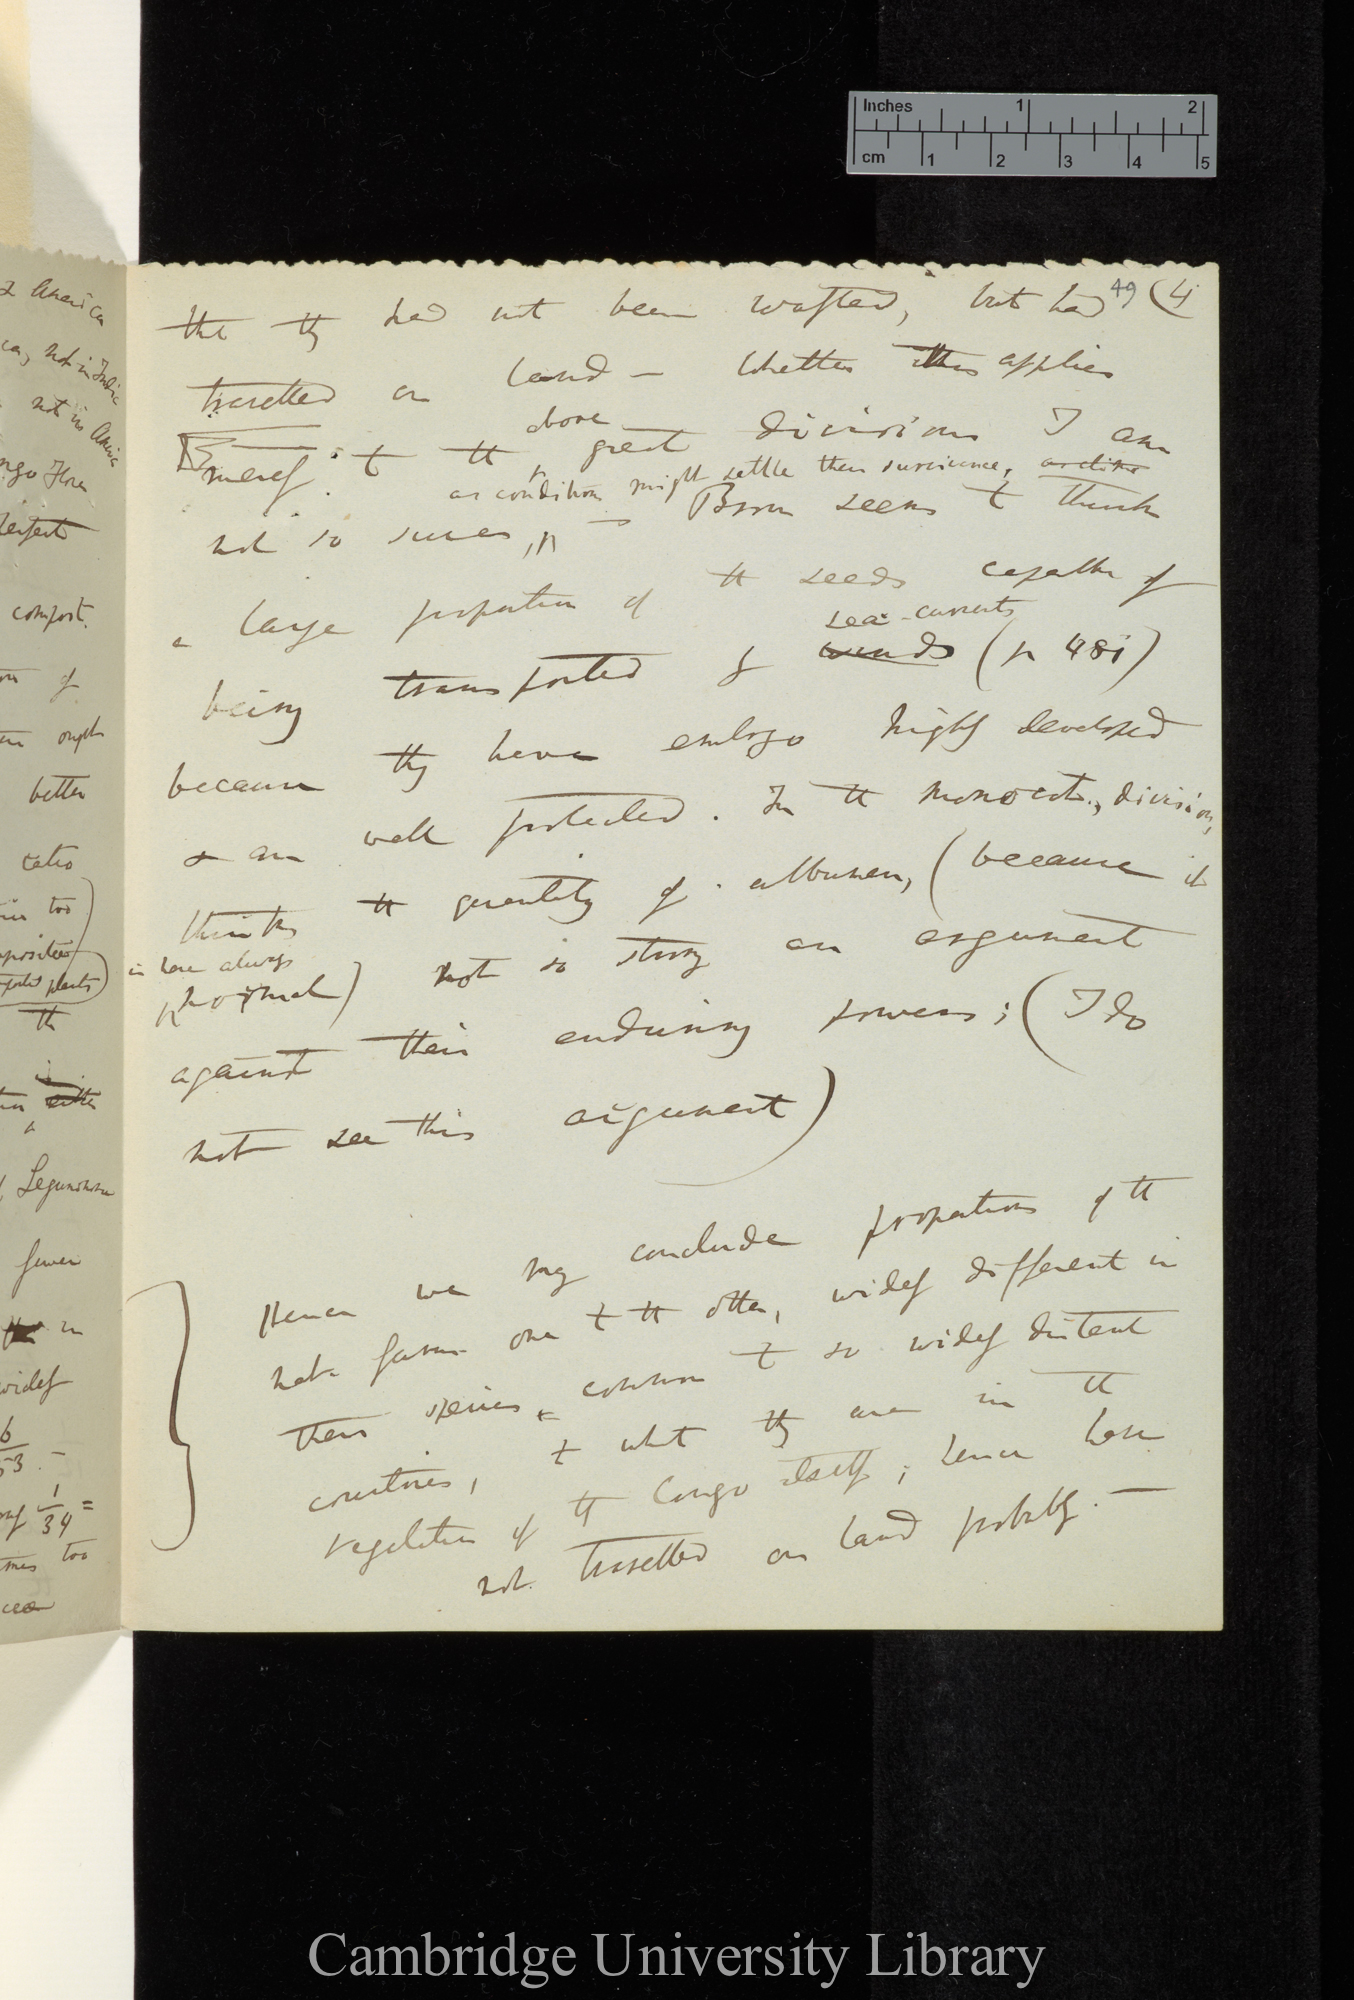 Inches 1 2
cm 1 2 3 4 5
49 (4
that they had not been wafted, but had
travelled on land — Whether this applies
above
merely to the great divisions I am
as conditions might settle their survivance,
not so sure, — Brown seems to think
a large proportion of the seeds capable of
sea-currents
being transported by winds (p 481)
because they have embryo highly developed
& are well protected. In the Monocot., division,
thinks the quantity of albumen, (because it
is here always
normal) not so strong an argument
against their enduring powers; (I do
not see this argument)
Hence we may conclude proportions of the
not same one to the other, widely different in
these species common to so widely distant
countries, to what they are in the
vegetation of the Congo itself; hence have
not travelled on land probably. —
America
not in India
not in America
Flora
compost.
of
ought
better
ratio
too
plants)
the
Leguminosae
fewer
in
widely
1/34 =
too
Cambridge University Library